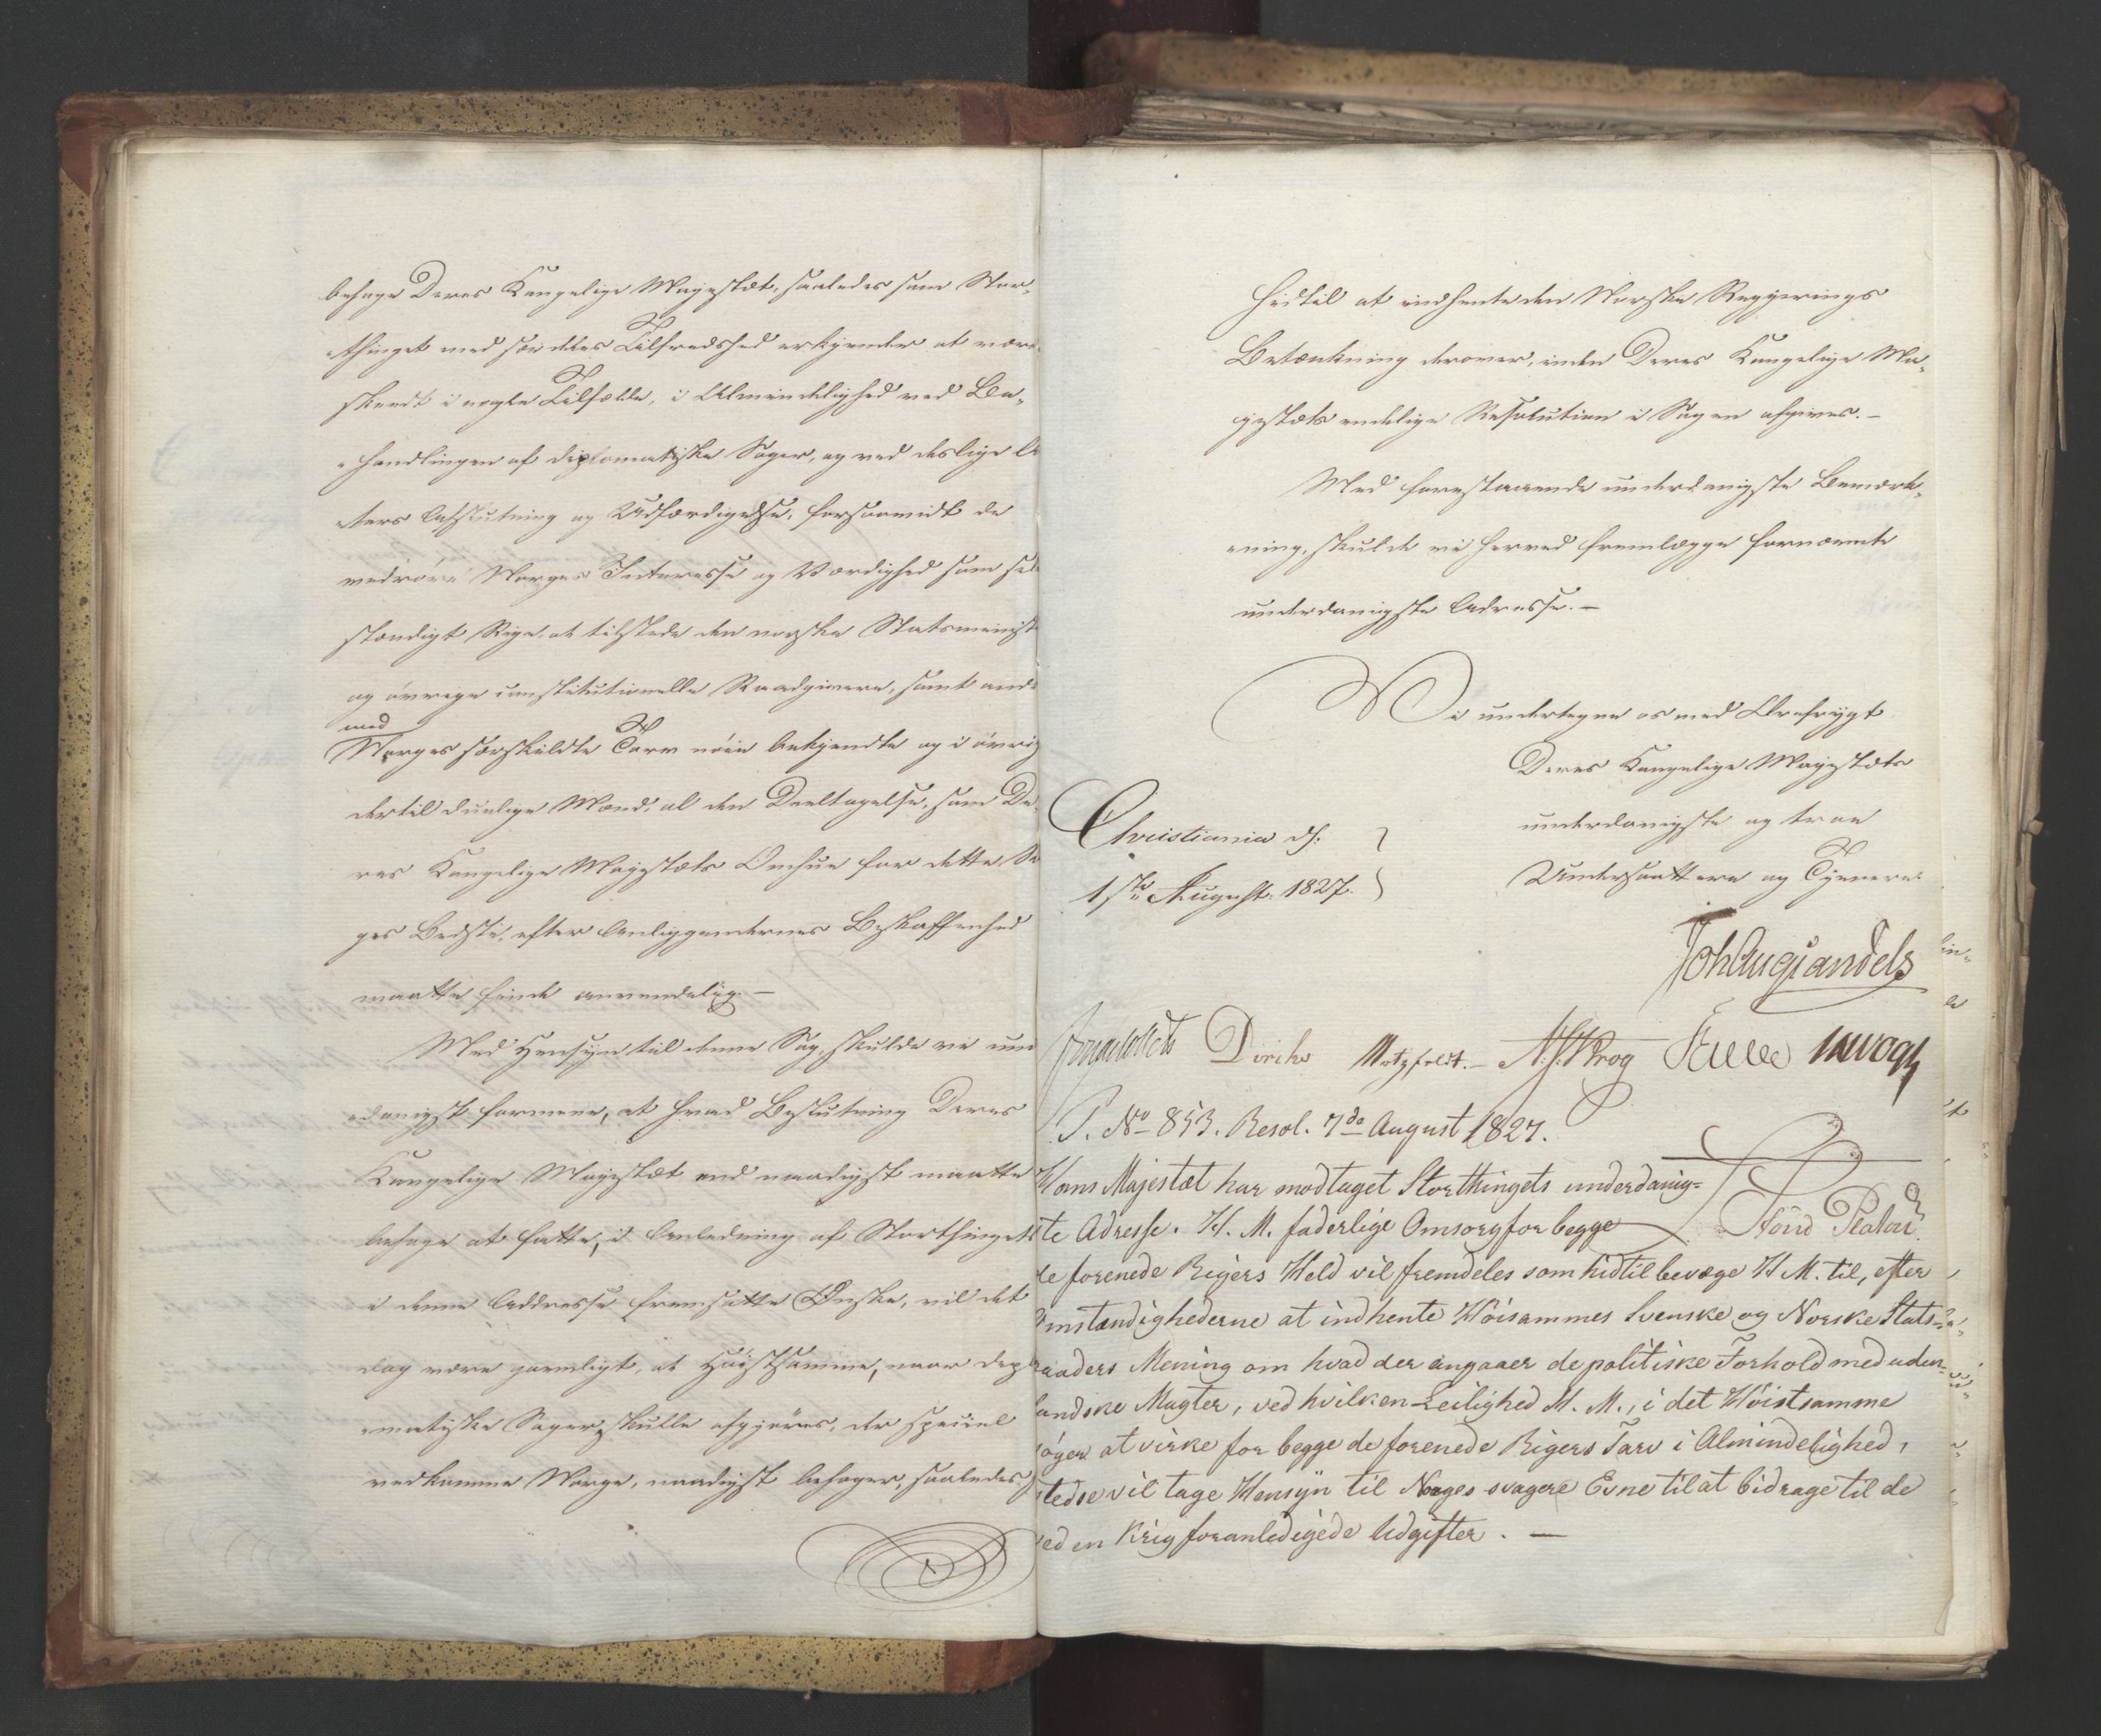 behage Deres Kongelige Majestæt, saaledes som Stor-
thinget med særdeles Tilfredshed erkjender at være
skeedt i nogle Tilfælde, i Almindelighed ved Be-
handlingen af diplomatiske Sager, og ved deslige
Afslutning og Udfærdigelse, forsaavidt de
vedröre Norges Interesse og Værdighed som
stændigt Rige, at tilstede den norske
og övrige constitutionelle Raadgivere, samt
med
Norges særskildte Tarv nöie bekjendte og i
dertil duelige Mænd, al den Deeltagelse, som De-
res Kongelige Majestæts Omhue for dette
ges Bedste, efter Anliggendernes Beskaffenhed
maatte finde anvendelig. -
Med Hensyn til denne Sag, skulde vi un
danigst formene, at hvad Beslutning Deres
Kongelige Majestæt end naadigst maatte
behage at fatte, i Anledning af Storthingets
i denne Addresse fremsatte Önske, vil det
dog være gavnligt, at Höistsamme, naar
matiske Sager skulle afgjöres, der speciel
vedkomme Norge, naadigst behager, saaledes
hidtil at indhente den Norske Regjerings
Betænkning derover, inden Deres Kongelige Ma-
jestæts endelige Resolution i Sagen afgives. -
Med forestaaende underdanigste Bemærk-
ning, skulde vi herved fremlægge fornævnte
underdanigste Adresse. -
Vi undertegne os med Ærefrygt
Deres Kongelige Majestæts
underdanigste og troe
Undersaattere og Tjenere.
Christiania d:
1ste August. 1827.
Joh Aug Sandels
Diriks Motzfeldt. - Krog
P. No 853. Resol. 7de August 1827.
Hans Majestæt har modtaget Storthingets underdanig=
ste Adresse. H. M. faderlige Omsorg for begge
de forenede Rigers Held vil fremdeles som hidtil bevæge H M. til, efter
Omstændighederne at indhente Höisammes Svenske og Norske Stats-
raaders Mening om hvad der angaaer de politiske Forhold med uden-
landske Magter, ved hvilken Leilighed H. M., i det Höistsamme
söger at virke for begge de forenede Rigers Tarv i Almindelighed,
stedse vil tage Hensyn til Norges svagere Evne til at bidrage til de
ved en Krig foranledigede Udgifter. -